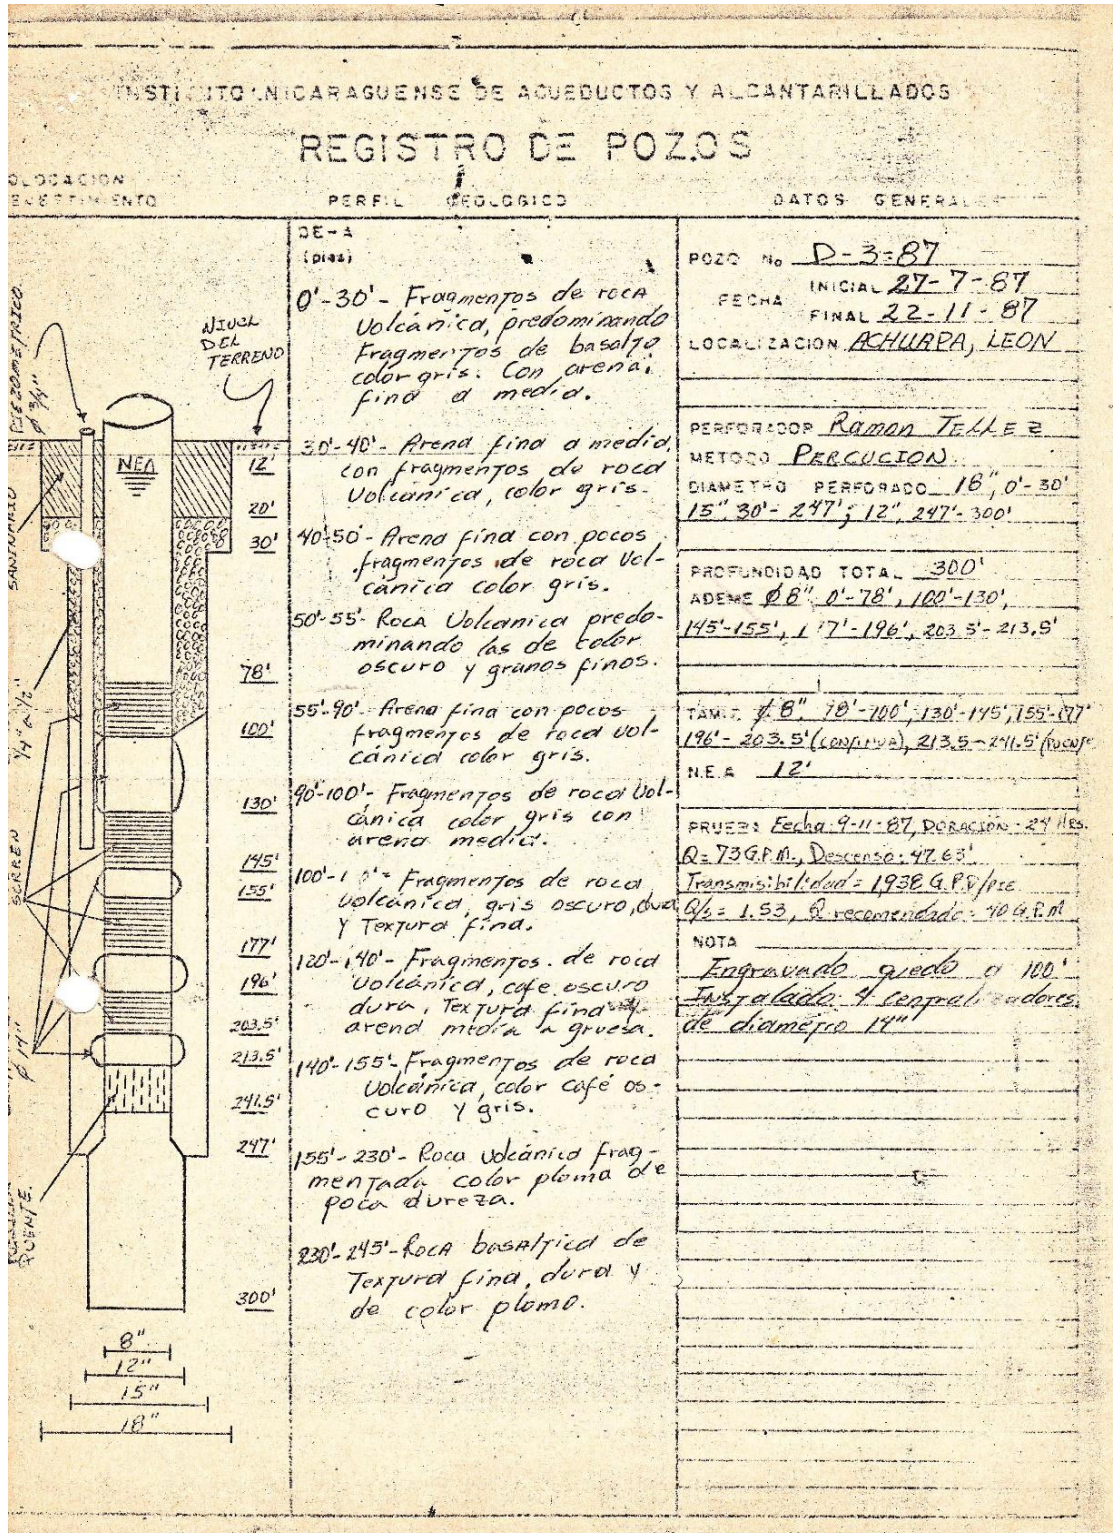 INSTITUTO NICARAGUENSE DE ACUEDUCTOS Y ALCANTARILLADOS
REGISTRO DE POZOS
PERFIL GEOLOGICO
DATOS GENERALES
PIEZOMETRICO
ø 3/4"
NIVEL
DEL
TERRENO
NEA
SANITARIO
1/4" a 1/2"
SCRREN
ø 14"
PUENTE.
12'
20'
30'
78'
100'
130'
145'
155'
177'
196'
203.5'
213.5'
241.5'
247'
300'
8"
12"
15"
18"
DE-A
(pies)
0'-30'- Fragmentos de roca
Volcánica, predominando
Fragmentos de basalto
color gris. Con arena
fina a media.
30'-40'- Arena fina a media,
con fragmentos de roca
Volcánica, color gris.
40'-50'- Arena fina con pocos
fragmentos de roca vol-
cánica color gris.
50'-55'- Roca Volcanica predo-
minando las de color
oscuro y granos finos.
55'-90'- Arena fina con pocos
fragmentos de roca vol-
cánica color gris.
90'-100'- Fragmentos de roca Vol-
cánica color gris con
arena media.
100'- Fragmentos de roca
volcánica, gris oscuro, dura
y Textura fina.
120'-140'- Fragmentos de roca
Volcánica, cafe oscuro
dura, Textura fina y
arena media a gruesa.
140'-155'- Fragmentos de roca
Volcánica, color café os-
curo y gris.
155'-230'- Roca volcánica frag-
mentada color ploma de
poca dureza.
230'-245'- Roca basaltica de
Textura fina, dura y
de color plomo.
POZO No D-3-87
INICIAL 27-7-87
FECHA
FINAL 22-11-87
LOCALIZACION ACHUAPA, LEON
PERFORADOR Ramon TELLEZ
METODO PERCUCION
DIAMETRO PERFORADO 18", 0'-30'
15" 30'-247'; 12", 247'-300'
PROFUNDIDAD TOTAL 300'
ADEME ø8" 0'-78', 100'-130',
145'-155', 1 7'-196', 203.5'-213.5'
TAMIZ ø8", 78'-100', 130'-145', 155'-177'
196'-203.5' (CONTINUA), 213.5-241.5' (PUENTE
N.E.A 12'
PRUEBA Fecha: 9-11-87, DURACION - 24 Hrs.
Q= 73 G.P.M., Descenso: 47.63'
Transmisibilidad = 1,938 G.P.D/PIE
Q/s = 1.53, Q recomendado = 40 G.P.M
NOTA
Engravado quedo a 100'
Instalado 4 centralizadores
de diametro 14"